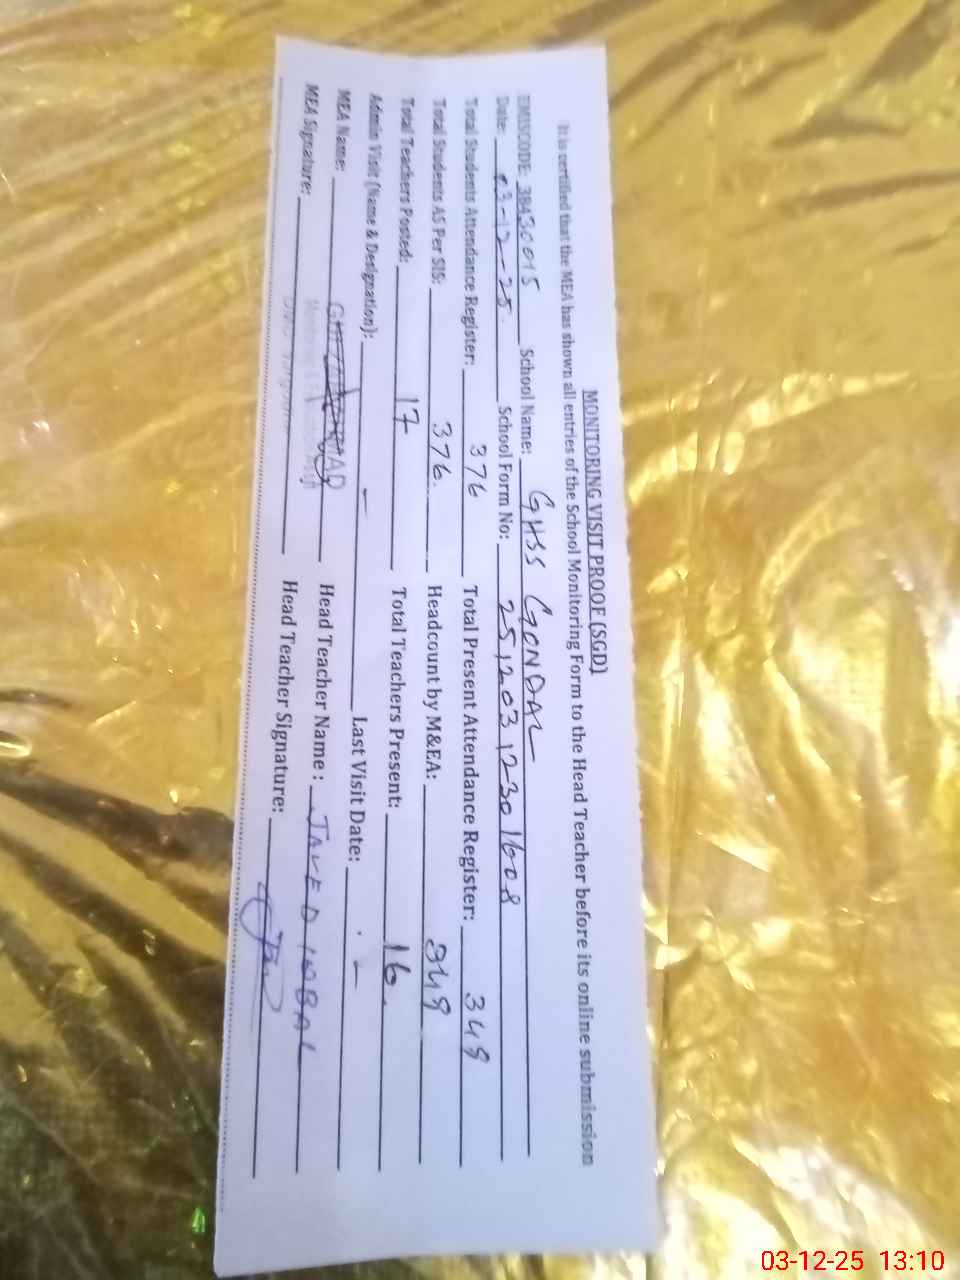 MONITORING VISIT PROOF (SGD)
It is certified that the MEA has shown all entries of the School Monitoring Form to the Head Teacher before its online submission
EMISCODE: 38430015 School Name: GHSS GONDAL
Date: 03-12-25 School Form No: 25120312301608
Total Students Attendance Register: 376 Total Present Attendance Register: 349
Total Students AS Per SIS: 376 Headcount by M&EA: 349
Total Teachers Posted: 17 Total Teachers Present: 16
Admin Visit (Name & Designation): - Last Visit Date: -
MEA Name: Head Teacher Name : JAVED IQBAL
MEA Signature: Head Teacher Signature:
03-12-25 13:10